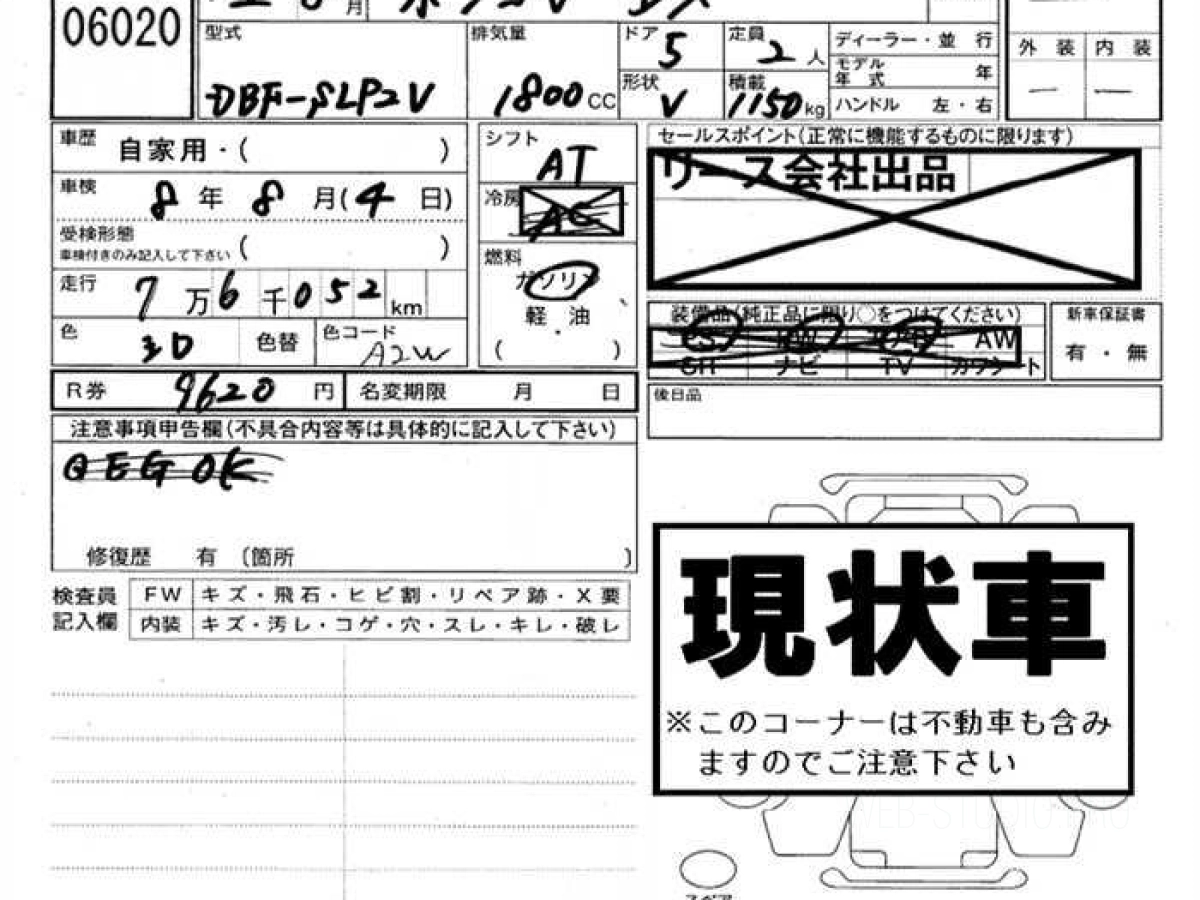 06020
月 ボンゴV DX
型式 DBF-SLP2V
排気量 1800 CC
ドア 5
定員 2 人
形状 V
積載 1150 kg
ディーラー・並 行
モデル年 式 年
ハンドル 左・右
外 装 内 装
― ―
車歴 自家用・( )
車検 8 年 8 月(4 日)
受検形態
車検付きのみ記入して下さい ( )
走行 7 万 6 千 052 km
色
色替
色コード A2W
シフト AT
冷房 AC
燃料
ガソリン
軽・油
・
( )
セールスポイント(正常に機能するものに限ります)
リース会社出品
装備品(純正品に限り○をつけてください)
PS PW エアB AW
SR ナビ TV カワシート
新車保証書
有・無
R券 9620 円
名変期限 月 日
後日品
注意事項申告欄(不具合内容等は具体的に記入して下さい)
@EG OK
修復歴 有 〔箇所 〕
検査員
記入欄
FW キズ・飛石・ヒビ割・リペア跡・X要
内装 キズ・汚レ・コゲ・穴・スレ・キレ・破レ
現状車
※このコーナーは不動車も含み
ますのでご注意下さい
スペア